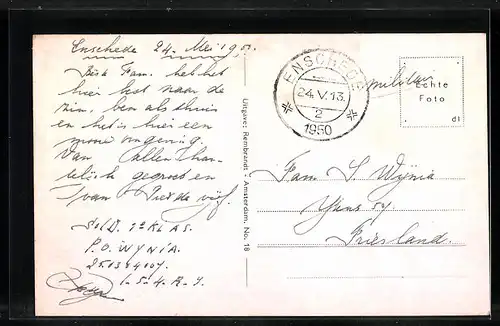 Enschede 24 Mei 1950.
Fam. heb het
hier best naar de
zin, ben als thuis
en het is hier een
mooie omgeving.
Van allen har-
telijk gegroeten
van Piet de
Sold. 1e KLAS.
P.O. WYNIA.
1-5-4 R.I.
Uitgave: Rembrandt - Amsterdam. No. 18
ENSCHEDE
24.V.13.
2
1950
militair
Echte
Foto
dl
Fam S. Wynia
Friesland.